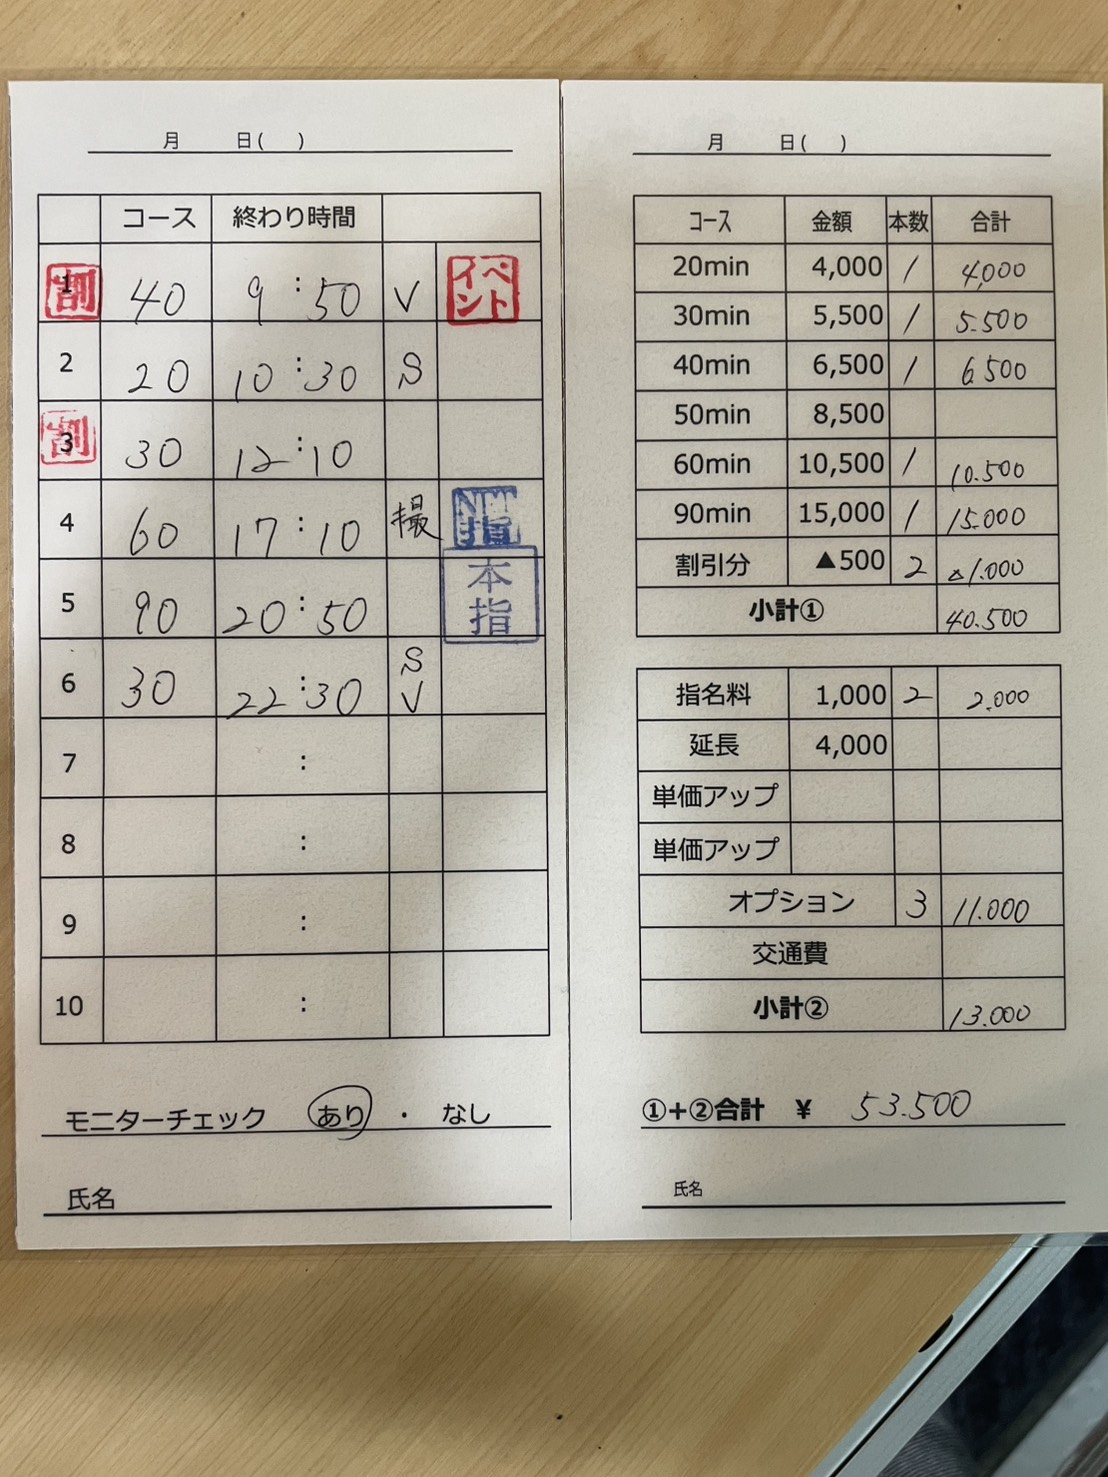 月 日( )
コース 終わり時間
1 割 40 9:50 V イベント
2 20 10:30 S
3 割 30 12:10
4 60 17:10 撮 NET指
5 90 20:50 本指
6 30 22:30 S V
7 :
8 :
9 :
10 :
モニターチェック あり ・ なし
氏名
月 日( )
ｺｰｽ 金額 本数 合計
20min 4,000 1 4,000
30min 5,500 1 5.500
40min 6,500 1 6500
50min 8,500
60min 10,500 1 10.500
90min 15,000 1 15.000
割引分 ▲500 2 △1.000
小計① 40.500
指名料 1,000 2 2.000
延長 4,000
単価アップ
単価アップ
オプション 3 11.000
交通費
小計② 13.000
①+②合計 ¥ 53.500
氏名